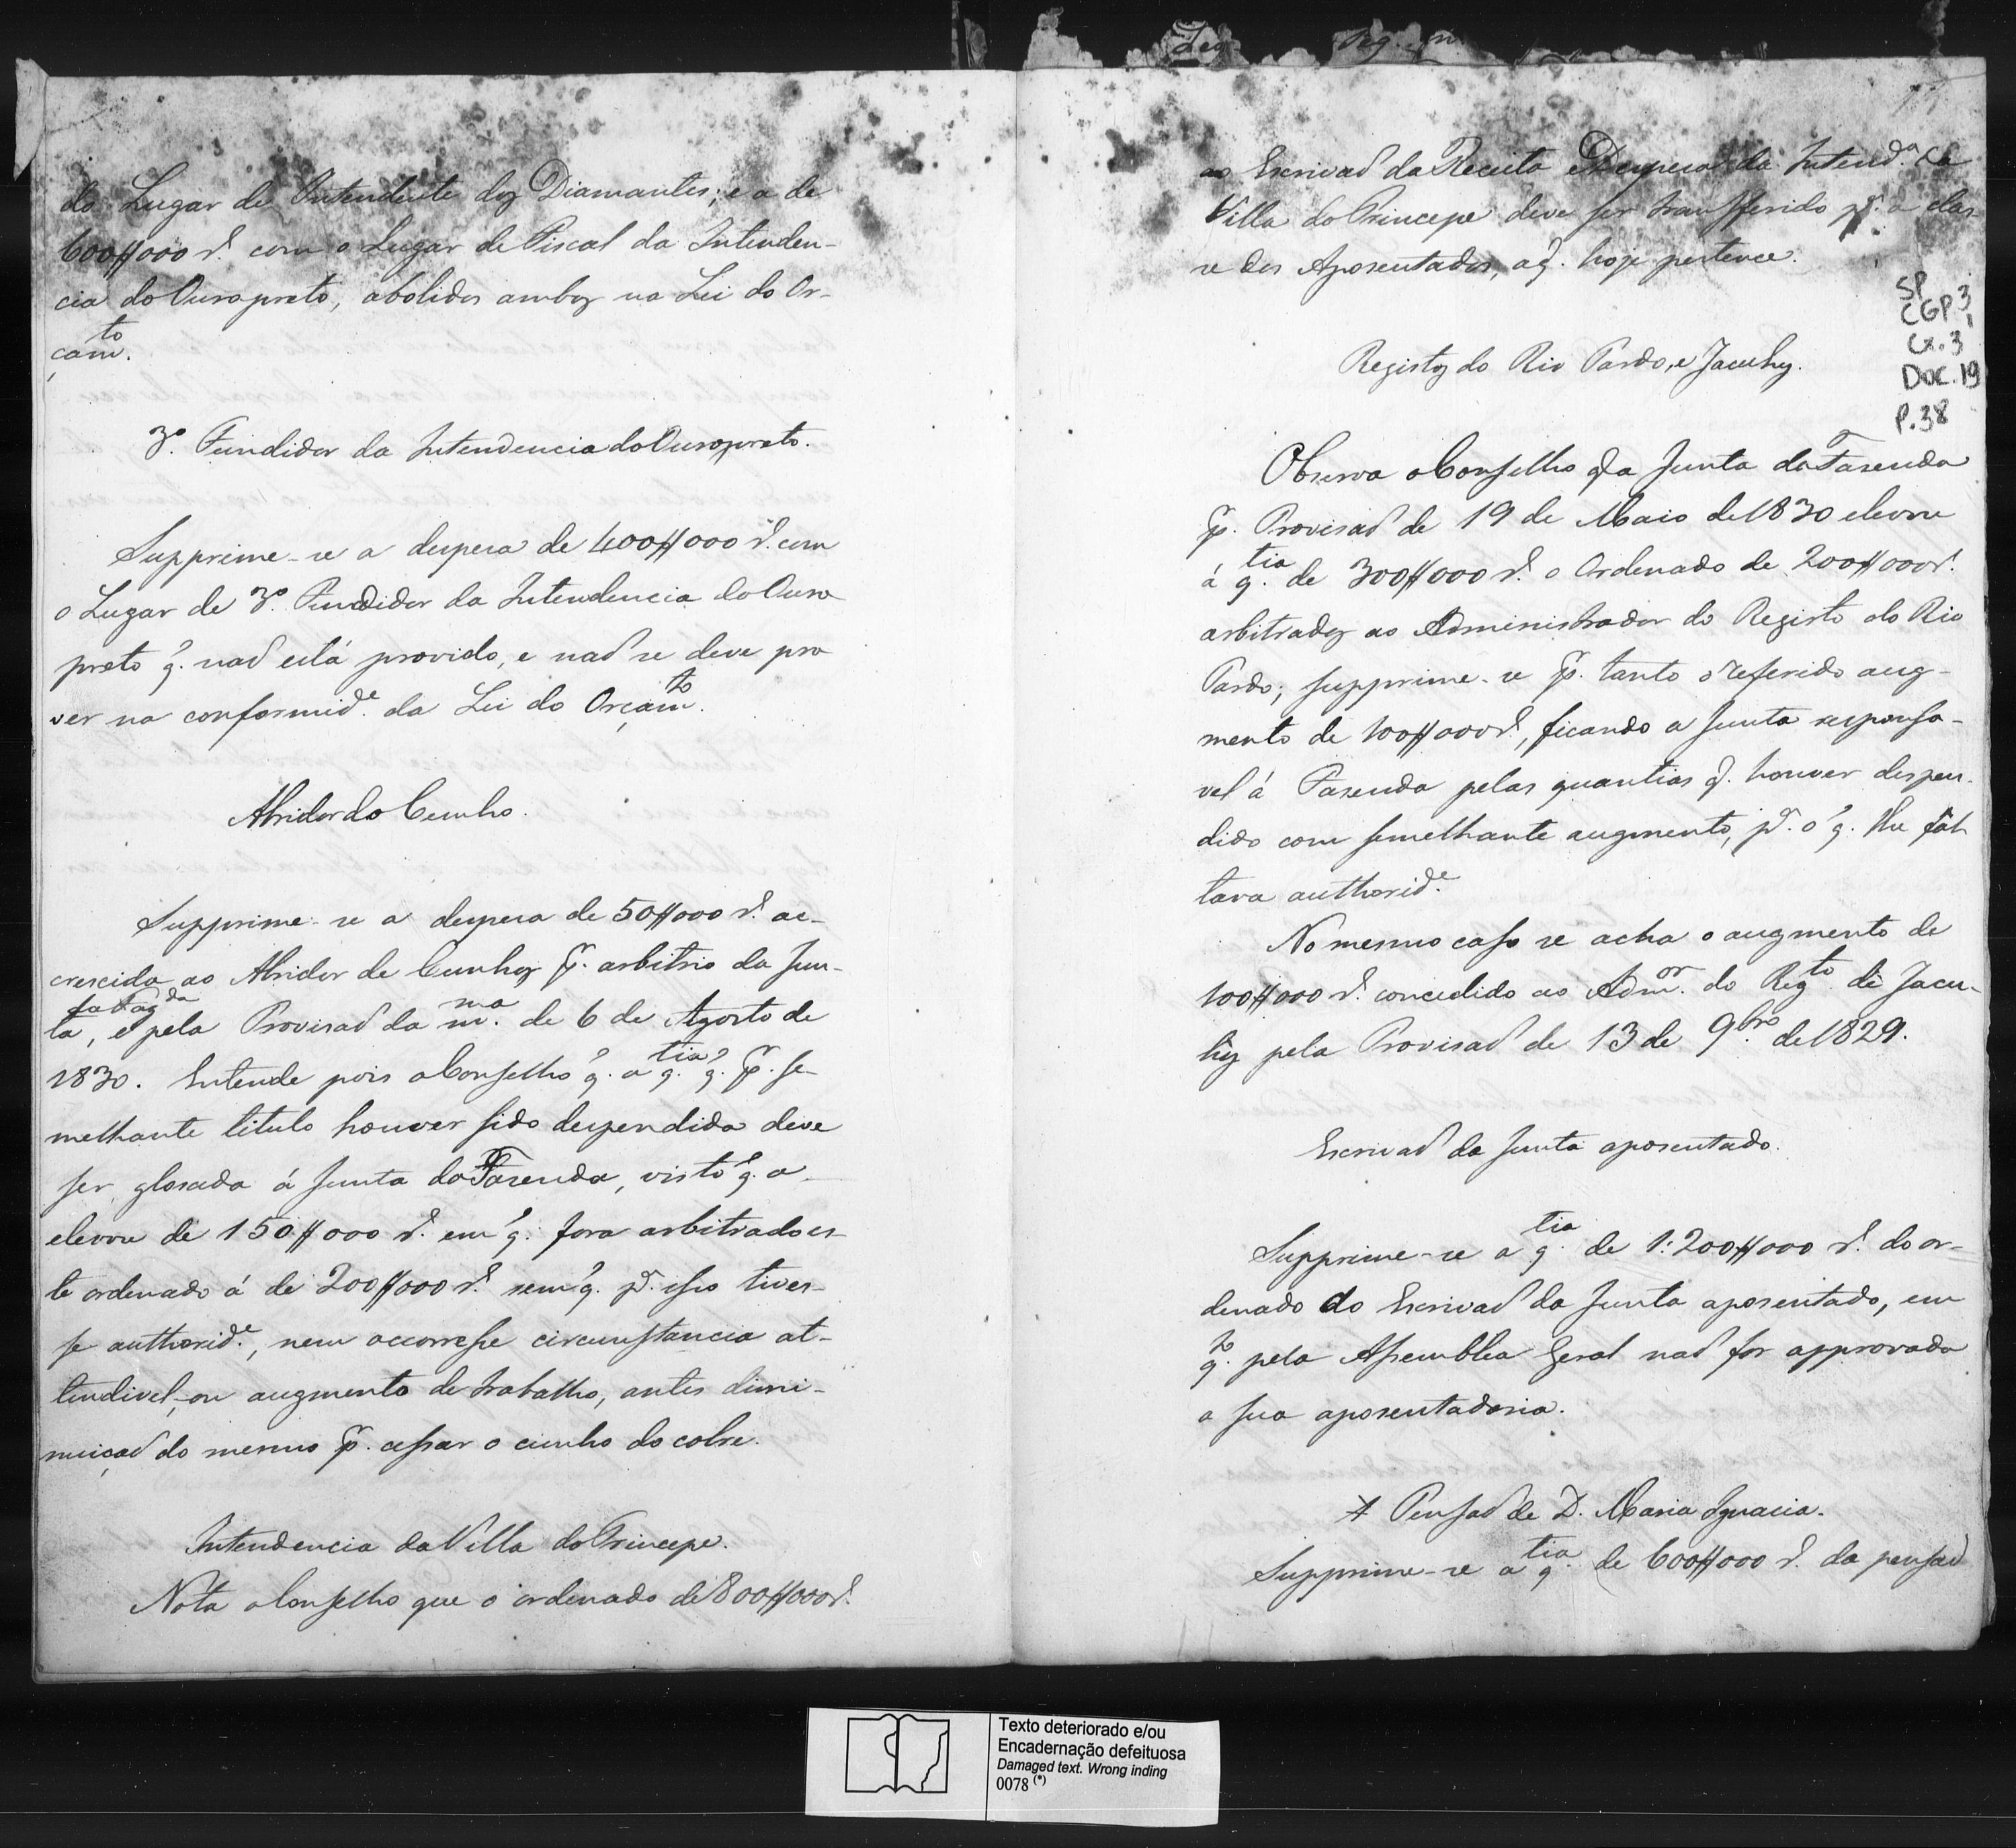 do Lugar de Intendente dos Diamantes; e a de
600$000 rs. com o Lugar de Fiscal da Intenden-
cia do Ouro preto, abolidos ambos na Lei do Or-
çamto.
3º. Fundidor da Intendencia do Ouro preto.
Supprime-se a despesa de 400$000 rs. com
o Lugar de 3º. Fundidor da Intendencia do Ouro
preto q. naõ está provido, e naõ se deve pro
ver na conformide. da Lei do Orçamto.
Abridor do Cunho.
Supprime-se a despesa de 50$000 rs. ac-
crescida ao Abridor de Cunhos p. arbitrio da Jun-
ta da Fazda, e pela Provisaõ da mma. de 6 de Agosto de
1830. Entende pois o Conselho q. a qtia. q. p. se-
melhante titulo houver sido despendida deve
ser glosada á Junta da Fasenda, visto q. a
elevou de 150$000 rs. em q. fora arbitrado es-
te ordenado á de 200$000 rs. sem q. pa. isso tives-
se authoride., nem occorresse circunstancia at-
tendivel, ou augmento de trabalho, antes dimi-
nuiçaõ do mesmo p. cessar o cunho do cobre.
Intendencia da Villa do Principe.
Nota o Conselho que o ordenado de 800$000 rs.
ao Escrivaõ da Receita e Despesa da Intenda. da
Villa do Princepe deve ser transferido pa. a clas
se dos Aposentados, a q. hoje pertence.
SP
CGP 3
Cx. 3
Doc. 19
P. 38
Registos do Rio Pardo, e Jacuhy.
Observa o Conselho q a Junta da Fasenda
p. Provisaõ de 19 de Maio de 1830 elevou
á qtia. de 300$000 rs. o Ordenado de 200$000 rs.
arbitrados ao Administrador do Registo do Rio
Pardo; supprime-se p. tanto o referido aug-
mento de 100$000 rs., ficando a Junta responsa-
vel á Fasenda pelas quantias q. houver despen-
dido com semelhante augmento, pa. o q. lhe fal
tava authoride.
No mesmo caso se acha o augmento de
100$000 rs. concedido ao Admor. do Regto. de Jacu-
hy pela Provisaõ de 13 de 9bro. de 1829.
Escrivaõ da Junta aposentado.
Supprime-se a qtia. de 1:200$000 rs. do or-
denado do Escrivaõ da Junta aposentado, em
qto. pela Assemblea Geral naõ for approvada
a sua aposentadoria.
Pensaõ de D. Maria Ignacia.
Supprime-se a qtia. de 600$000 rs. da pensaõ
Texto deteriorado e/ou
Encadernação defeituosa
Damaged text. Wrong inding
0078 (*)